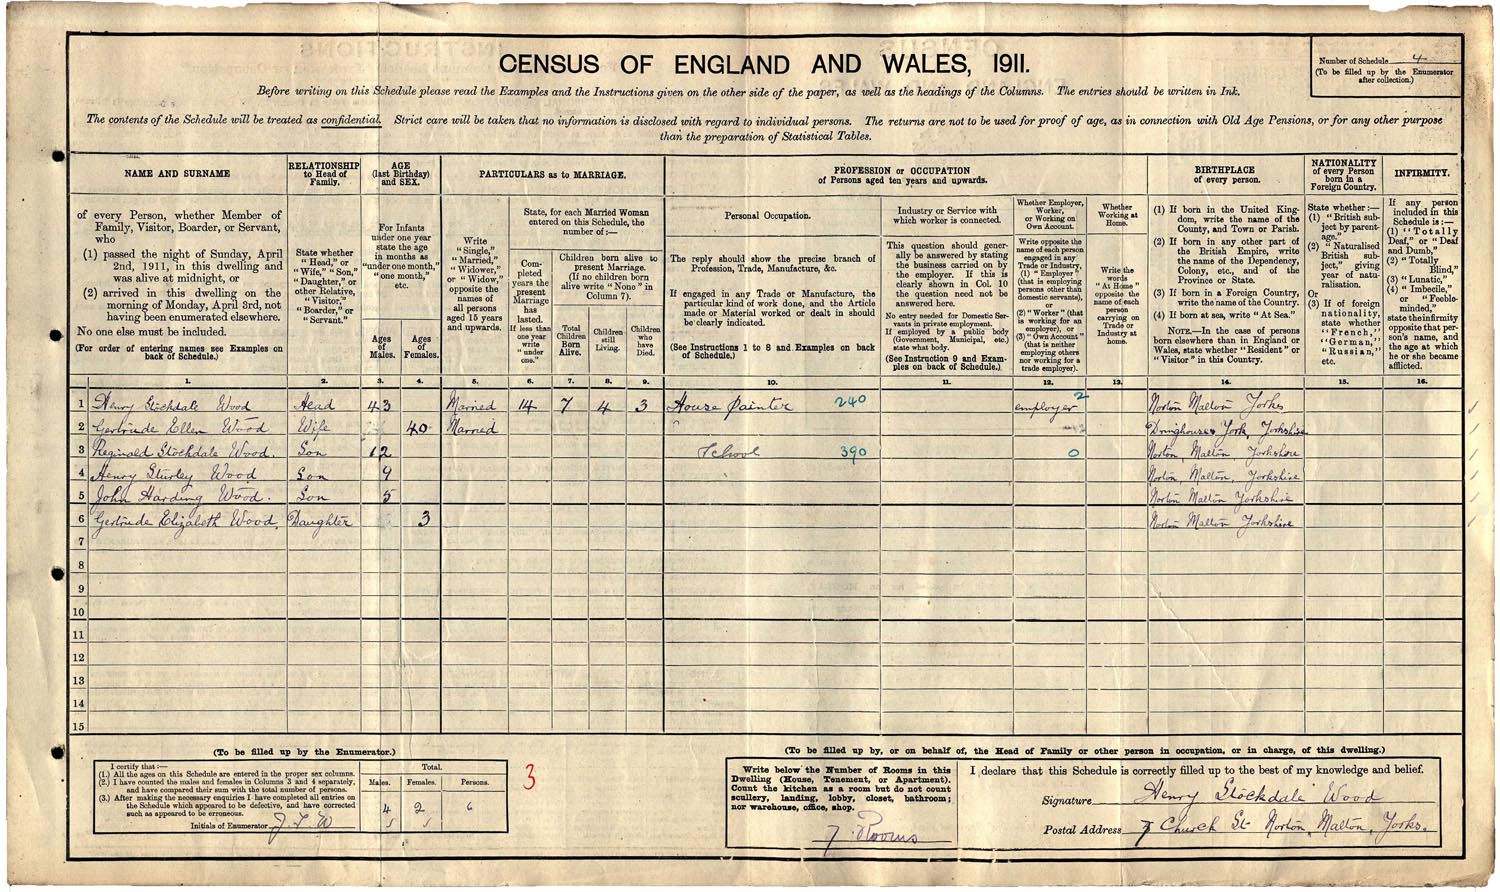 CENSUS OF ENGLAND AND WALES, 1911.
Number of Schedule 4
(To be filled up by the Enumerator
after collection.)
Before writing on this Schedule please read the Examples and the Instructions given on the other side of the paper, as well as the headings of the Columns. The entries should be written in Ink.
The contents of the Schedule will be treated as confidential. Strict care will be taken that no information is disclosed with regard to individual persons. The returns are not to be used for proof of age, as in connection with Old Age Pensions, or for any other purpose
than the preparation of Statistical Tables.
NAME AND SURNAME
of every Person, whether Member of
Family, Visitor, Boarder, or Servant,
who
(1) passed the night of Sunday, April
2nd, 1911, in this dwelling and
was alive at midnight, or
(2) arrived in this dwelling on the
morning of Monday, April 3rd, not
having been enumerated elsewhere.
No one else must be included.
(For order of entering names see Examples on
back of Schedule.)
RELATIONSHIP
to Head of
Family.
State whether
"Head," or
"Wife," "Son,"
"Daughter," or
other Relative,
"Visitor,"
"Boarder," or
"Servant."
AGE
(last Birthday)
and SEX.
For Infants
under one year
state the age
in months as
"under one month,"
"one month,"
etc.
Ages
of
Males.
Ages
of
Females.
PARTICULARS as to MARRIAGE.
Write
"Single,"
"Married,"
"Widower,"
or "Widow,"
opposite the
names of
all persons
aged 15 years
and upwards.
State, for each Married Woman
entered on this Schedule, the
number of:—
Com-
pleted
years the
present
Marriage
has
lasted.
If less than
one year
write
"under
one."
Children born alive to
present Marriage.
(If no children born
alive write "None" in
Column 7).
Total
Children
Born
Alive.
Children
still
Living.
Children
who
have
Died.
PROFESSION or OCCUPATION
of Persons aged ten years and upwards.
Personal Occupation.
The reply should show the precise branch of
Profession, Trade, Manufacture, &c.
If engaged in any Trade or Manufacture, the
particular kind of work done, and the Article
made or Material worked or dealt in should
be clearly indicated.
(See Instructions 1 to 8 and Examples on back
of Schedule.)
Industry or Service with
which worker is connected.
This question should gener-
ally be answered by stating
the business carried on by
the employer. If this is
clearly shown in Col. 10
the question need not be
answered here.
No entry needed for Domestic Ser-
vants in private employment.
If employed by a public body
(Government, Municipal, etc.)
state what body.
(See Instruction 9 and Exam-
ples on back of Schedule.)
Whether Employer,
Worker,
or Working on
Own Account.
Write opposite the
name of each person
engaged in any
Trade or Industry,
(1) "Employer"
(that is employing
persons other than
domestic servants),
or
(2) "Worker" (that
is working for an
employer), or
(3) "Own Account"
(that is neither
employing others
nor working for a
trade employer).
Whether
Working at
Home.
Write the
words
"At Home"
opposite the
name of each
person
carrying on
Trade or
Industry at
home.
BIRTHPLACE
of every person.
(1) If born in the United King-
dom, write the name of the
County, and Town or Parish.
(2) If born in any other part of
the British Empire, write
the name of the Dependency,
Colony, etc., and of the
Province or State.
(3) If born in a Foreign Country,
write the name of the Country.
(4) If born at sea, write "At Sea."
NOTE.—In the case of persons
born elsewhere than in England or
Wales, state whether "Resident" or
"Visitor" in this Country.
NATIONALITY
of every Person
born in a
Foreign Country.
State whether:—
(1) "British sub-
ject by parent-
age."
(2) "Naturalised
British sub-
ject," giving
year of natu-
ralisation.
Or
(3) If of foreign
nationality,
state whether
"French,"
"German,"
"Russian,"
etc.
INFIRMITY.
If any person
included in this
Schedule is:—
(1) "Totally
Deaf," or "Deaf
and Dumb,"
(2) "Totally
Blind,"
(3) "Lunatic,"
(4) "Imbecile,"
or "Feeble-
minded,"
state the infirmity
opposite that per-
son's name, and
the age at which
he or she became
afflicted.
1. 2. 3. 4. 5. 6. 7. 8. 9. 10. 11. 12. 13. 14. 15. 16.
1 Henry Stockdale Wood Head 43 Married 14 7 4 3 House Painter 240 employer 2 Norton Malton Yorks
2 Gertrude Ellen Wood Wife 40 Married Dringhouses York, Yorkshire
3 Reginald Stockdale Wood. Son 12 School 390 0 Norton, Malton, Yorkshire
4 Henry Sturley Wood Son 9 Norton, Malton, Yorkshire
5 John Harding Wood. Son 5 Norton Malton Yorkshire
6 Gertrude Elizabeth Wood, Daughter 3 Norton Malton Yorkshire
7
8
9
10
11
12
13
14
15
(To be filled up by the Enumerator.)
I certify that:—
(1.) All the ages on this Schedule are entered in the proper sex columns.
(2.) I have counted the males and females in Columns 3 and 4 separately,
and have compared their sum with the total number of persons.
(3.) After making the necessary enquiries I have completed all entries on
the Schedule which appeared to be defective, and have corrected
such as appeared to be erroneous.
Initials of Enumerator
Total.
Males. Females. Persons.
4 2 6
3
(To be filled up by, or on behalf of, the Head of Family or other person in occupation, or in charge, of this dwelling.)
Write below the Number of Rooms in this
Dwelling (House, Tenement, or Apartment).
Count the kitchen as a room but do not count
scullery, landing, lobby, closet, bathroom;
nor warehouse, office, shop.
7 Rooms
I declare that this Schedule is correctly filled up to the best of my knowledge and belief.
Signature Henry Stockdale Wood
Postal Address 7 Church St Norton, Malton, Yorks.